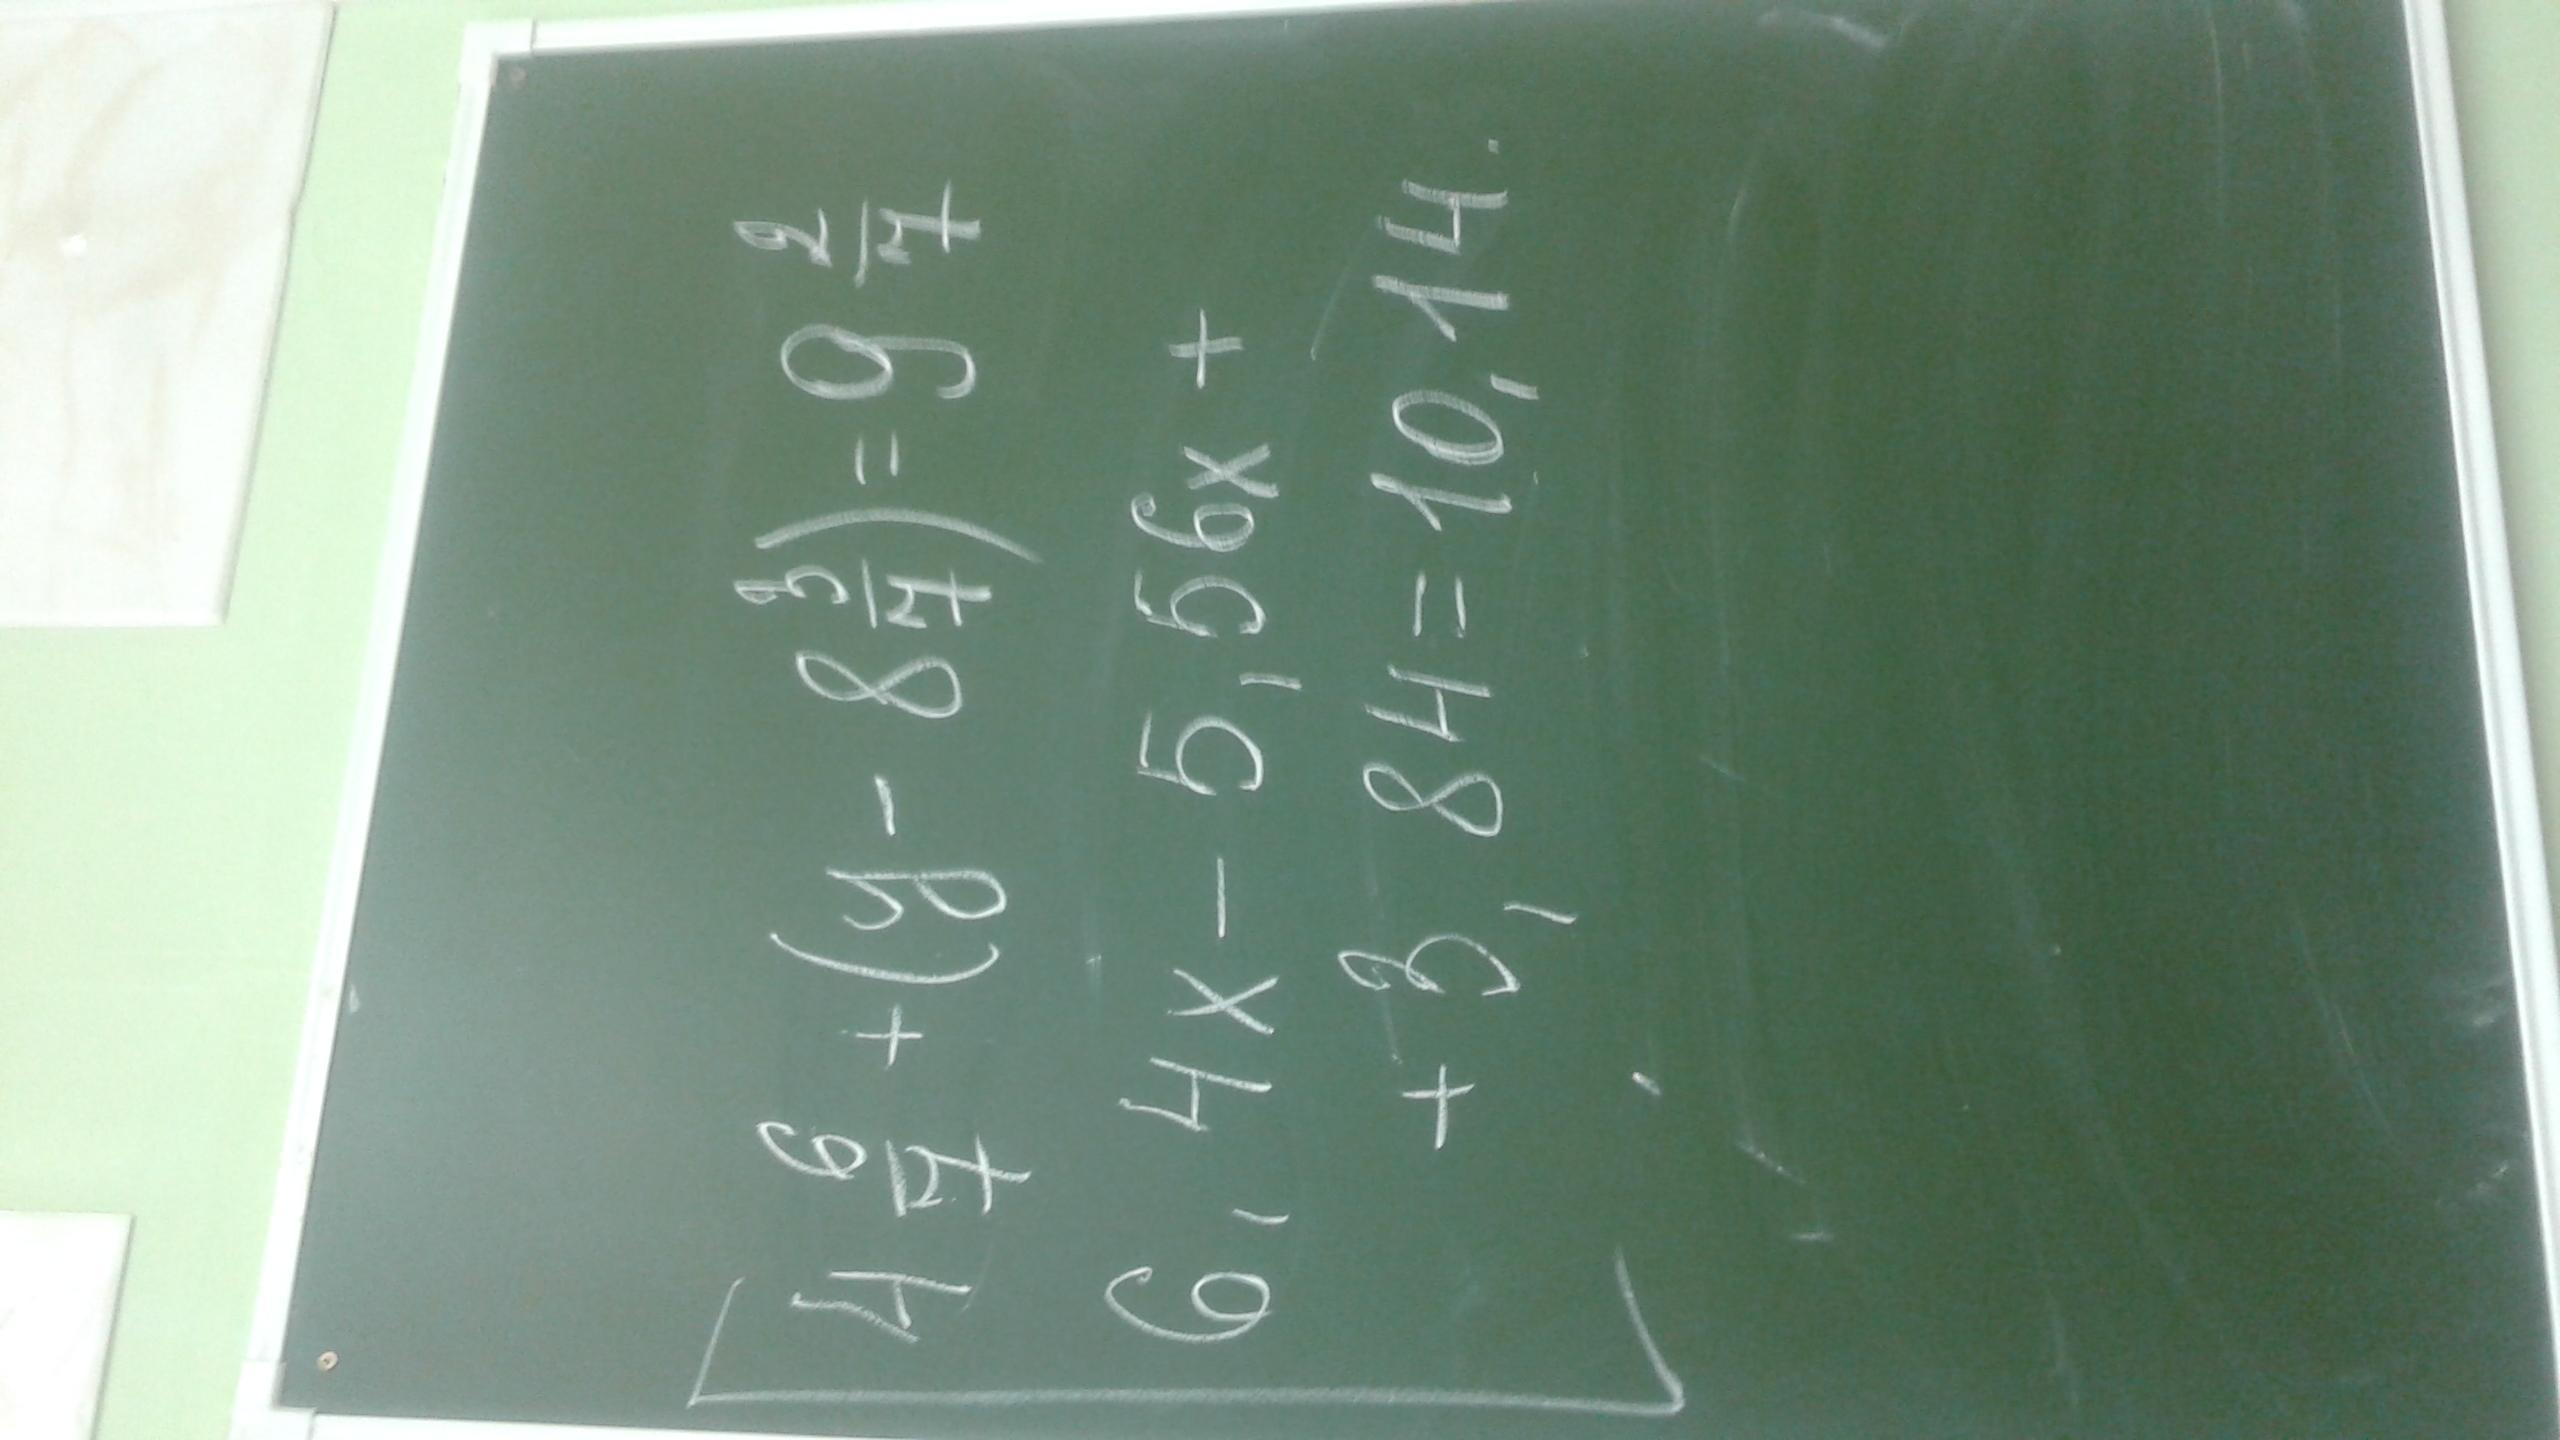 4 6/7 + (y - 8 3/7) = 9 2/7
6,4x - 5,56x +
+ 3,84 = 10,14.